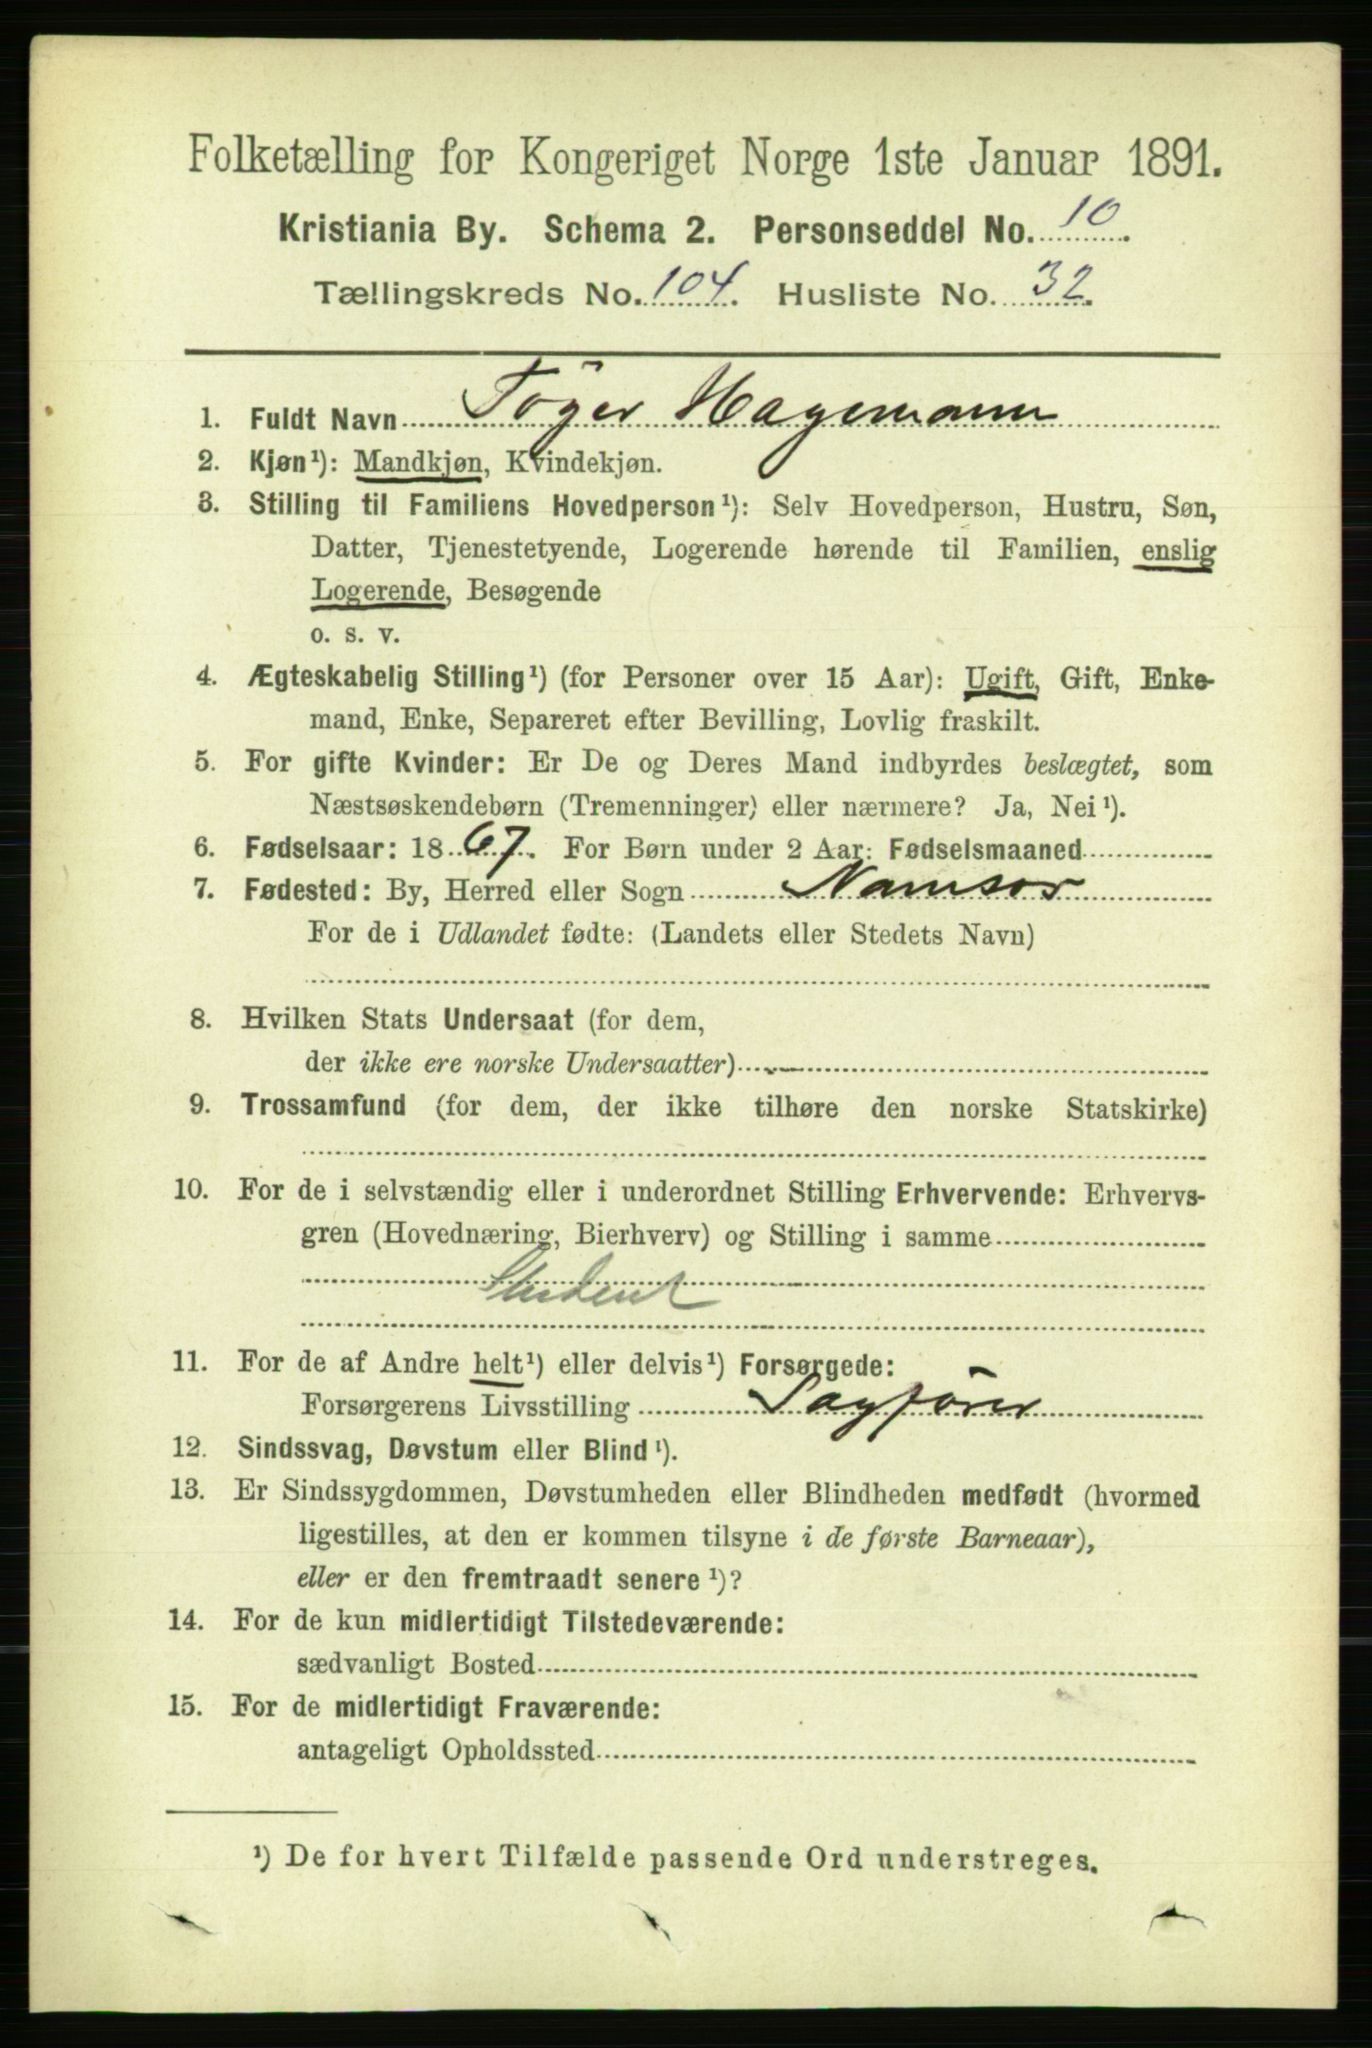 Folketælling for Kongeriget Norge 1ste Januar 1891.
Kristiania By. Schema 2. Personseddel No. 10.
Tællingskreds No. 104. Husliste No. 32.
1. Fuldt Navn Töger Hagemann
2. Kjøn¹): Mandkjøn, Kvindekjøn.
3. Stilling til Familiens Hovedperson¹): Selv Hovedperson, Hustru, Søn,
Datter, Tjenestetyende, Logerende hørende til Familien, enslig
Logerende, Besøgende
o. s. v.
4. Ægteskabelig Stilling¹) (for Personer over 15 Aar): Ugift, Gift, Enke-
mand, Enke, Separeret efter Bevilling, Lovlig fraskilt.
5. For gifte Kvinder: Er De og Deres Mand indbyrdes beslægtet, som
Næstsøskendebørn (Tremenninger) eller nærmere? Ja, Nei¹).
6. Fødselsaar: 1867. For Børn under 2 Aar: Fødselsmaaned
7. Fødested: By, Herred eller Sogn Namsos
For de i Udlandet fødte: (Landets eller Stedets Navn)
8. Hvilken Stats Undersaat (for dem,
der ikke ere norske Undersaatter)
9. Trossamfund (for dem, der ikke tilhøre den norske Statskirke)
10. For de i selvstændig eller i underordnet Stilling Erhvervende: Erhvervs-
gren (Hovednæring, Bierhverv) og Stilling i samme
Student
11. For de af Andre helt¹) eller delvis¹) Forsørgede:
Forsørgerens Livsstilling Sagförer
12. Sindssvag, Døvstum eller Blind¹).
13. Er Sindssygdommen, Døvstumheden eller Blindheden medfødt (hvormed
ligestilles, at den er kommen tilsyne i de første Barneaar),
eller er den fremtraadt senere¹)?
14. For de kun midlertidigt Tilstedeværende:
sædvanligt Bosted
15. For de midlertidigt Fraværende:
antageligt Opholdssted
¹) De for hvert Tilfælde passende Ord understreges.